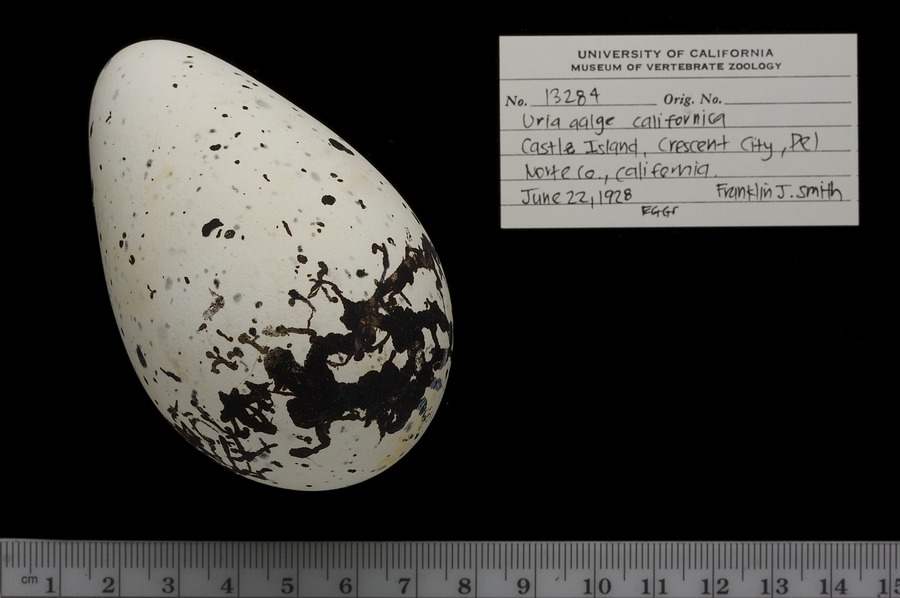 UNIVERSITY OF CALIFORNIA
MUSEUM OF VERTEBRATE ZOOLOGY
No. 13284 Orig. No.
Uria aalge californica
Castle Island, Crescent City, Del
Norte Co., California.
June 22, 1928 Franklin J. Smith
EGGS
cm 1 2 3 4 5 6 7 8 9 10 11 12 13 14 15